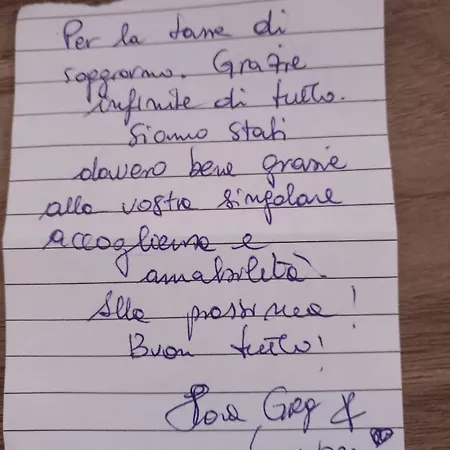 Per la tassa di
soggiorno. Grazie
infinite di tutto.
Siamo stati
davvero bene grazie
alla vostra singolare
accoglienza e
amabilità.
Alla prossima!
Buon tutto!
Greg &